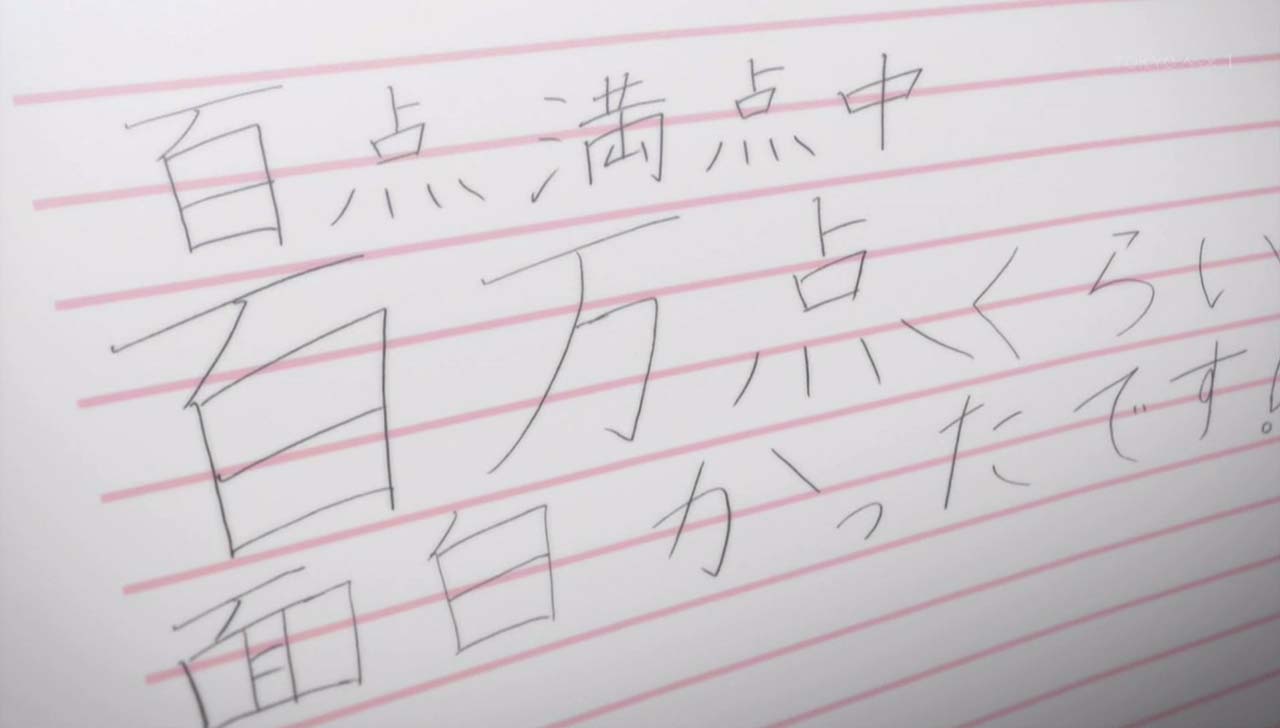 百点満点中
百万点くらい
面白かったです!
TOKYO MX 1